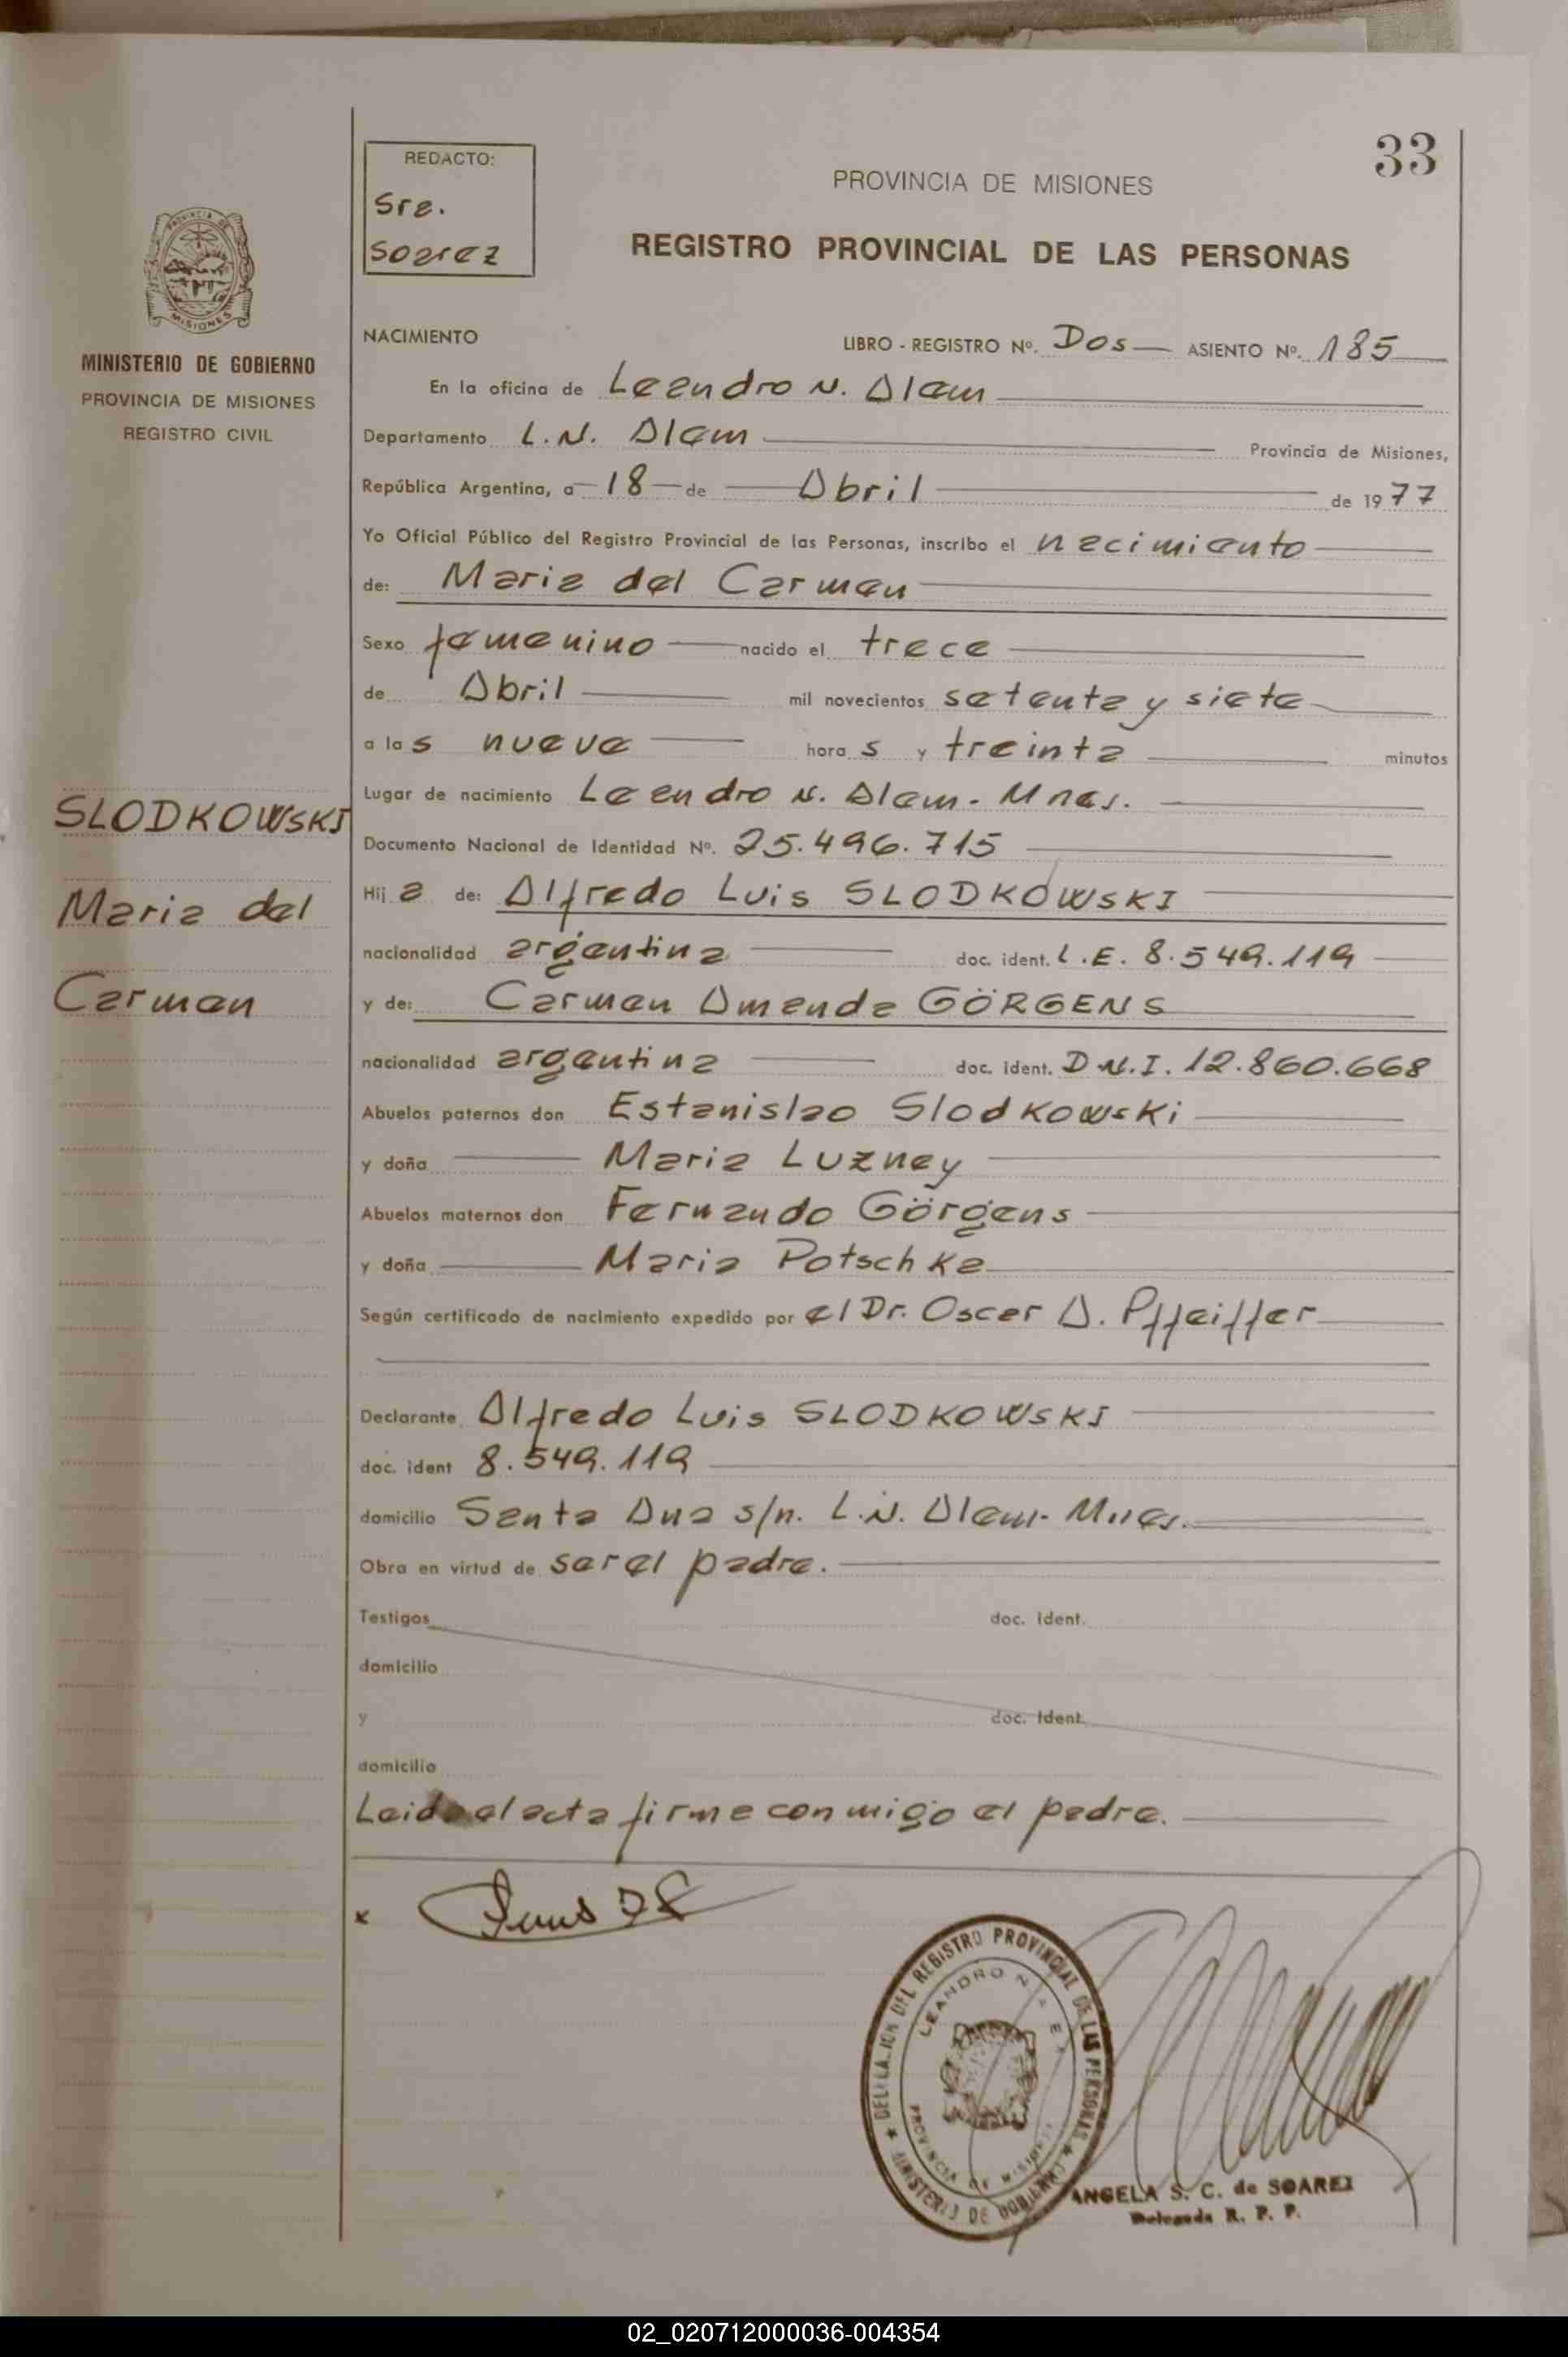 33
REDACTO:
Sra.
Soarez
PROVINCIA DE MISIONES
REGISTRO PROVINCIAL DE LAS PERSONAS
MISIONES
MINISTERIO DE GOBIERNO
PROVINCIA DE MISIONES
REGISTRO CIVIL
NACIMIENTO LIBRO - REGISTRO Nº. Dos ASIENTO Nº. 185
En la oficina de Leandro N. Alem
Departamento L.N. Alem Provincia de Misiones,
República Argentina, a 18 de Abril de 1977
Yo Oficial Público del Registro Provincial de las Personas, inscribo el nacimiento
de: Maria del Carmen
Sexo femenino nacido el trece
de Abril mil novecientos setenta y siete
a las nueve horas y treinta minutos
Lugar de nacimiento Leandro N. Alem - Mnes.
Documento Nacional de Identidad Nº. 25.496.715
Hija de: Alfredo Luis SLODKOWSKI
nacionalidad argentina doc. ident. L.E. 8.549.119
y de: Carmen Amanda GÖRGENS
nacionalidad argentina doc. ident. D.N.I. 12.860.668
Abuelos paternos don Estanislao Slodkowski
y doña Maria Luzney
Abuelos maternos don Fernando Görgens
y doña Maria Potschka
Según certificado de nacimiento expedido por el Dr. Oscar A. Pffeiffer
Declarante Alfredo Luis SLODKOWSKI
doc. ident 8.549.119
domicilio Santa Ana s/n. L.N. Alem - Mnes.
Obra en virtud de ser el padre.
Testigos doc. ident.
domicilio
y doc. ident.
domicilio
Leida el acta firma conmigo el padre.
SLODKOWSKI
Maria del
Carmen
x
DELEGACION DEL REGISTRO PROVINCIAL DE LAS PERSONAS
MINISTERIO DE GOBIERNO
LEANDRO N.
PROVINCIA DE MISIONES
ANGELA S. C. de SOAREZ
Delegada R. P. P.
02_020712000036-004354